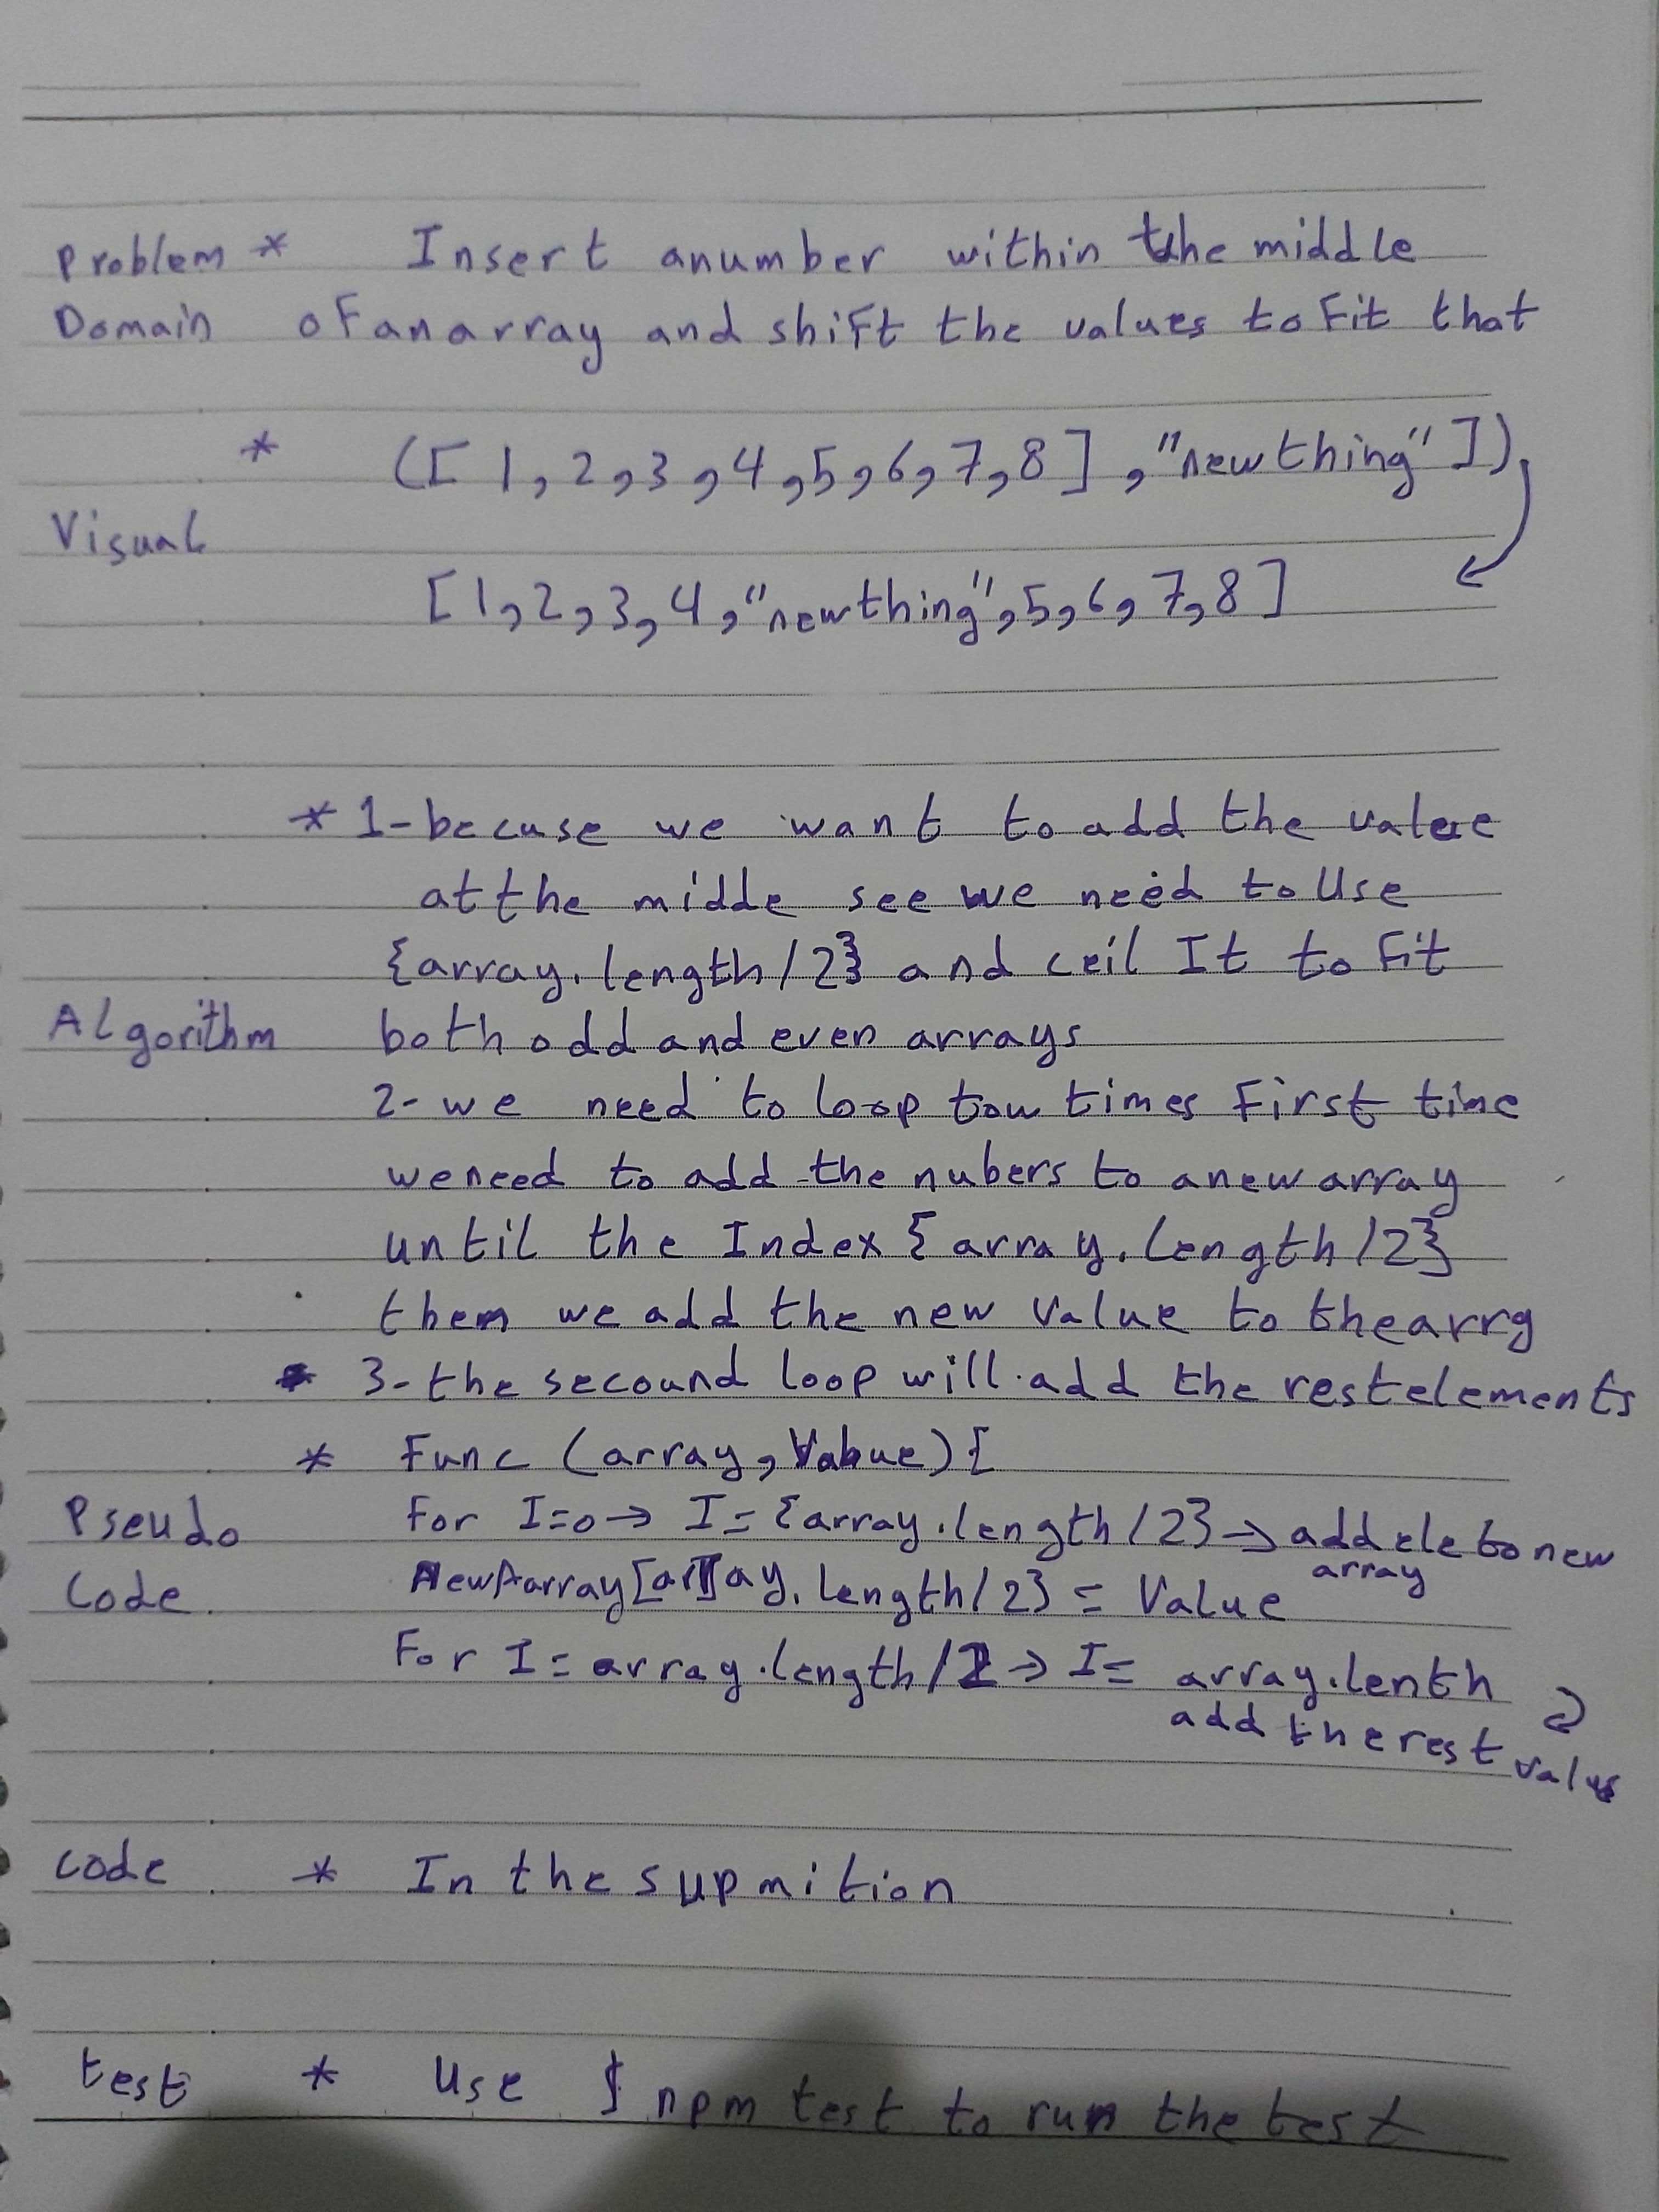 Problem * Insert anumber within the middle
Domain of an array and shift the values to fit that
* ([1,2,3,4,5,6,7,8],"newthing"])
Visual
[1,2,3,4,"newthing",5,6,7,8]
* 1-becuse we want to add the value
at the midde see we need to Use
{array.length/2} and ceil It to fit
Algorithm both odd and even arrays
2- we need to loop tow times First time
we need to add the nubers to a new array
until the Index {array.length/2}
them we add the new Value to the arrg
* 3-the secound loop will add the rest elements
* Func (array, Value) {
Pseudo For I=0 → I={array.length/2} → add ele to new
array
Code. NewAarray[array.length/2} = Value
For I=array.length/2 → I= array.lenth
add the rest
valus
code * In the supmition
test * Use $ npm test to run the test